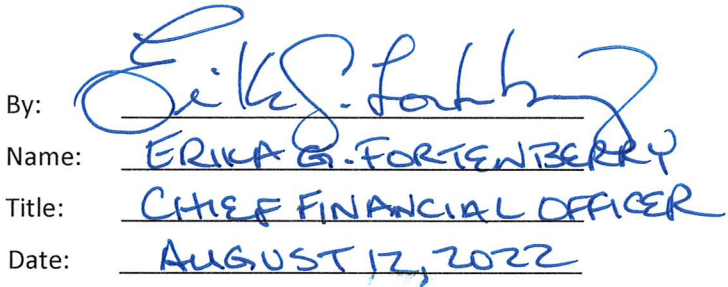 By: Erika G. Fortenberry
Name: ERIKA G. FORTENBERRY
Title: CHIEF FINANCIAL OFFICER
Date: AUGUST 12, 2022